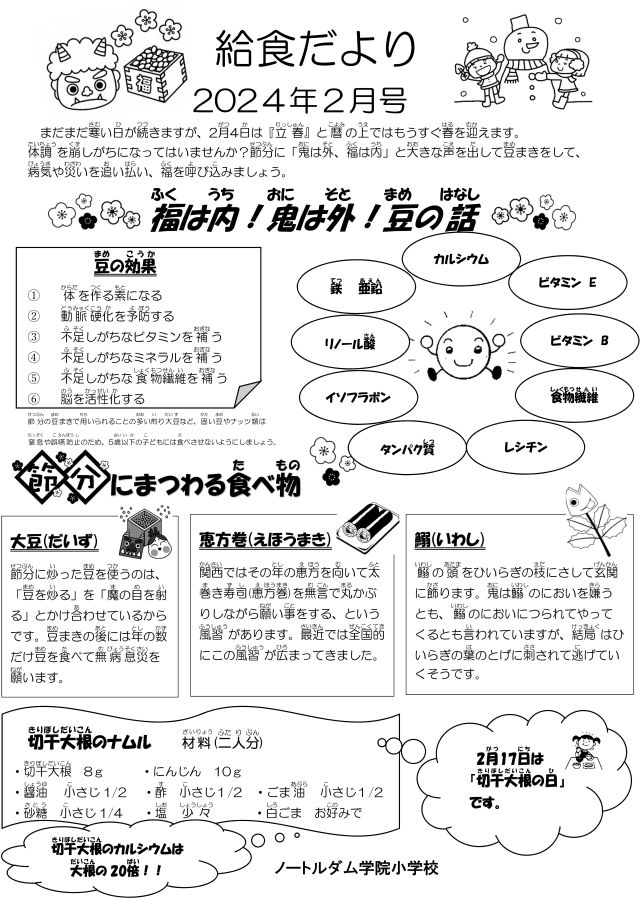 給食だより
福
2024年2月号
まだまだ寒い日が続きますが、2月4日は『立春』と暦の上ではもうすぐ春を迎えます。
体調を崩しがちになってはいませんか？節分に「鬼は外、福は内」と大きな声を出して豆まきをして、
病気や災いを追い払い、福を呼び込みましょう。
福は内！鬼は外！豆の話
豆の効果
① 体を作る素になる
② 動脈硬化を予防する
③ 不足しがちなビタミンを補う
④ 不足しがちなミネラルを補う
⑤ 不足しがちな食物繊維を補う
⑥ 脳を活性化する
節分の豆まきで用いられることの多い煎り大豆など、固い豆やナッツ類は
窒息や誤嚥防止のため、5歳以下の子どもには食べさせないようにしましょう。
カルシウム
鉄 亜鉛
ビタミン E
リノール酸
ビタミン B
イソフラボン
食物繊維
タンパク質
レシチン
節分にまつわる食べ物
大豆(だいず)
節分に炒った豆を使うのは、
「豆を炒る」を「魔の目を射
る」とかけ合わせているから
です。豆まきの後には年の数
だけ豆を食べて無病息災を
願います。
恵方巻(えほうまき)
関西ではその年の恵方を向いて太
巻き寿司(恵方巻)を無言で丸かぶ
りしながら願い事をする、という
風習があります。最近では全国的
にこの風習が広まってきました。
鰯(いわし)
鰯の頭をひいらぎの枝にさして玄関
に飾ります。鬼は鰯のにおいを嫌う
とも、鰯のにおいにつられてやって
くるとも言われていますが、結局はひ
いらぎの葉のとげに刺されて逃げてい
くそうです。
切干大根のナムル 材料(二人分)
・切干大根 8g ・にんじん 10g
・醤油 小さじ1/2 ・酢 小さじ1/2 ・ごま油 小さじ1/2
・砂糖 小さじ1/4 ・塩 少々 ・白ごま お好みで
2月17日は
「切干大根の日」
です。
切干大根のカルシウムは
大根の20倍！！
ノートルダム学院小学校